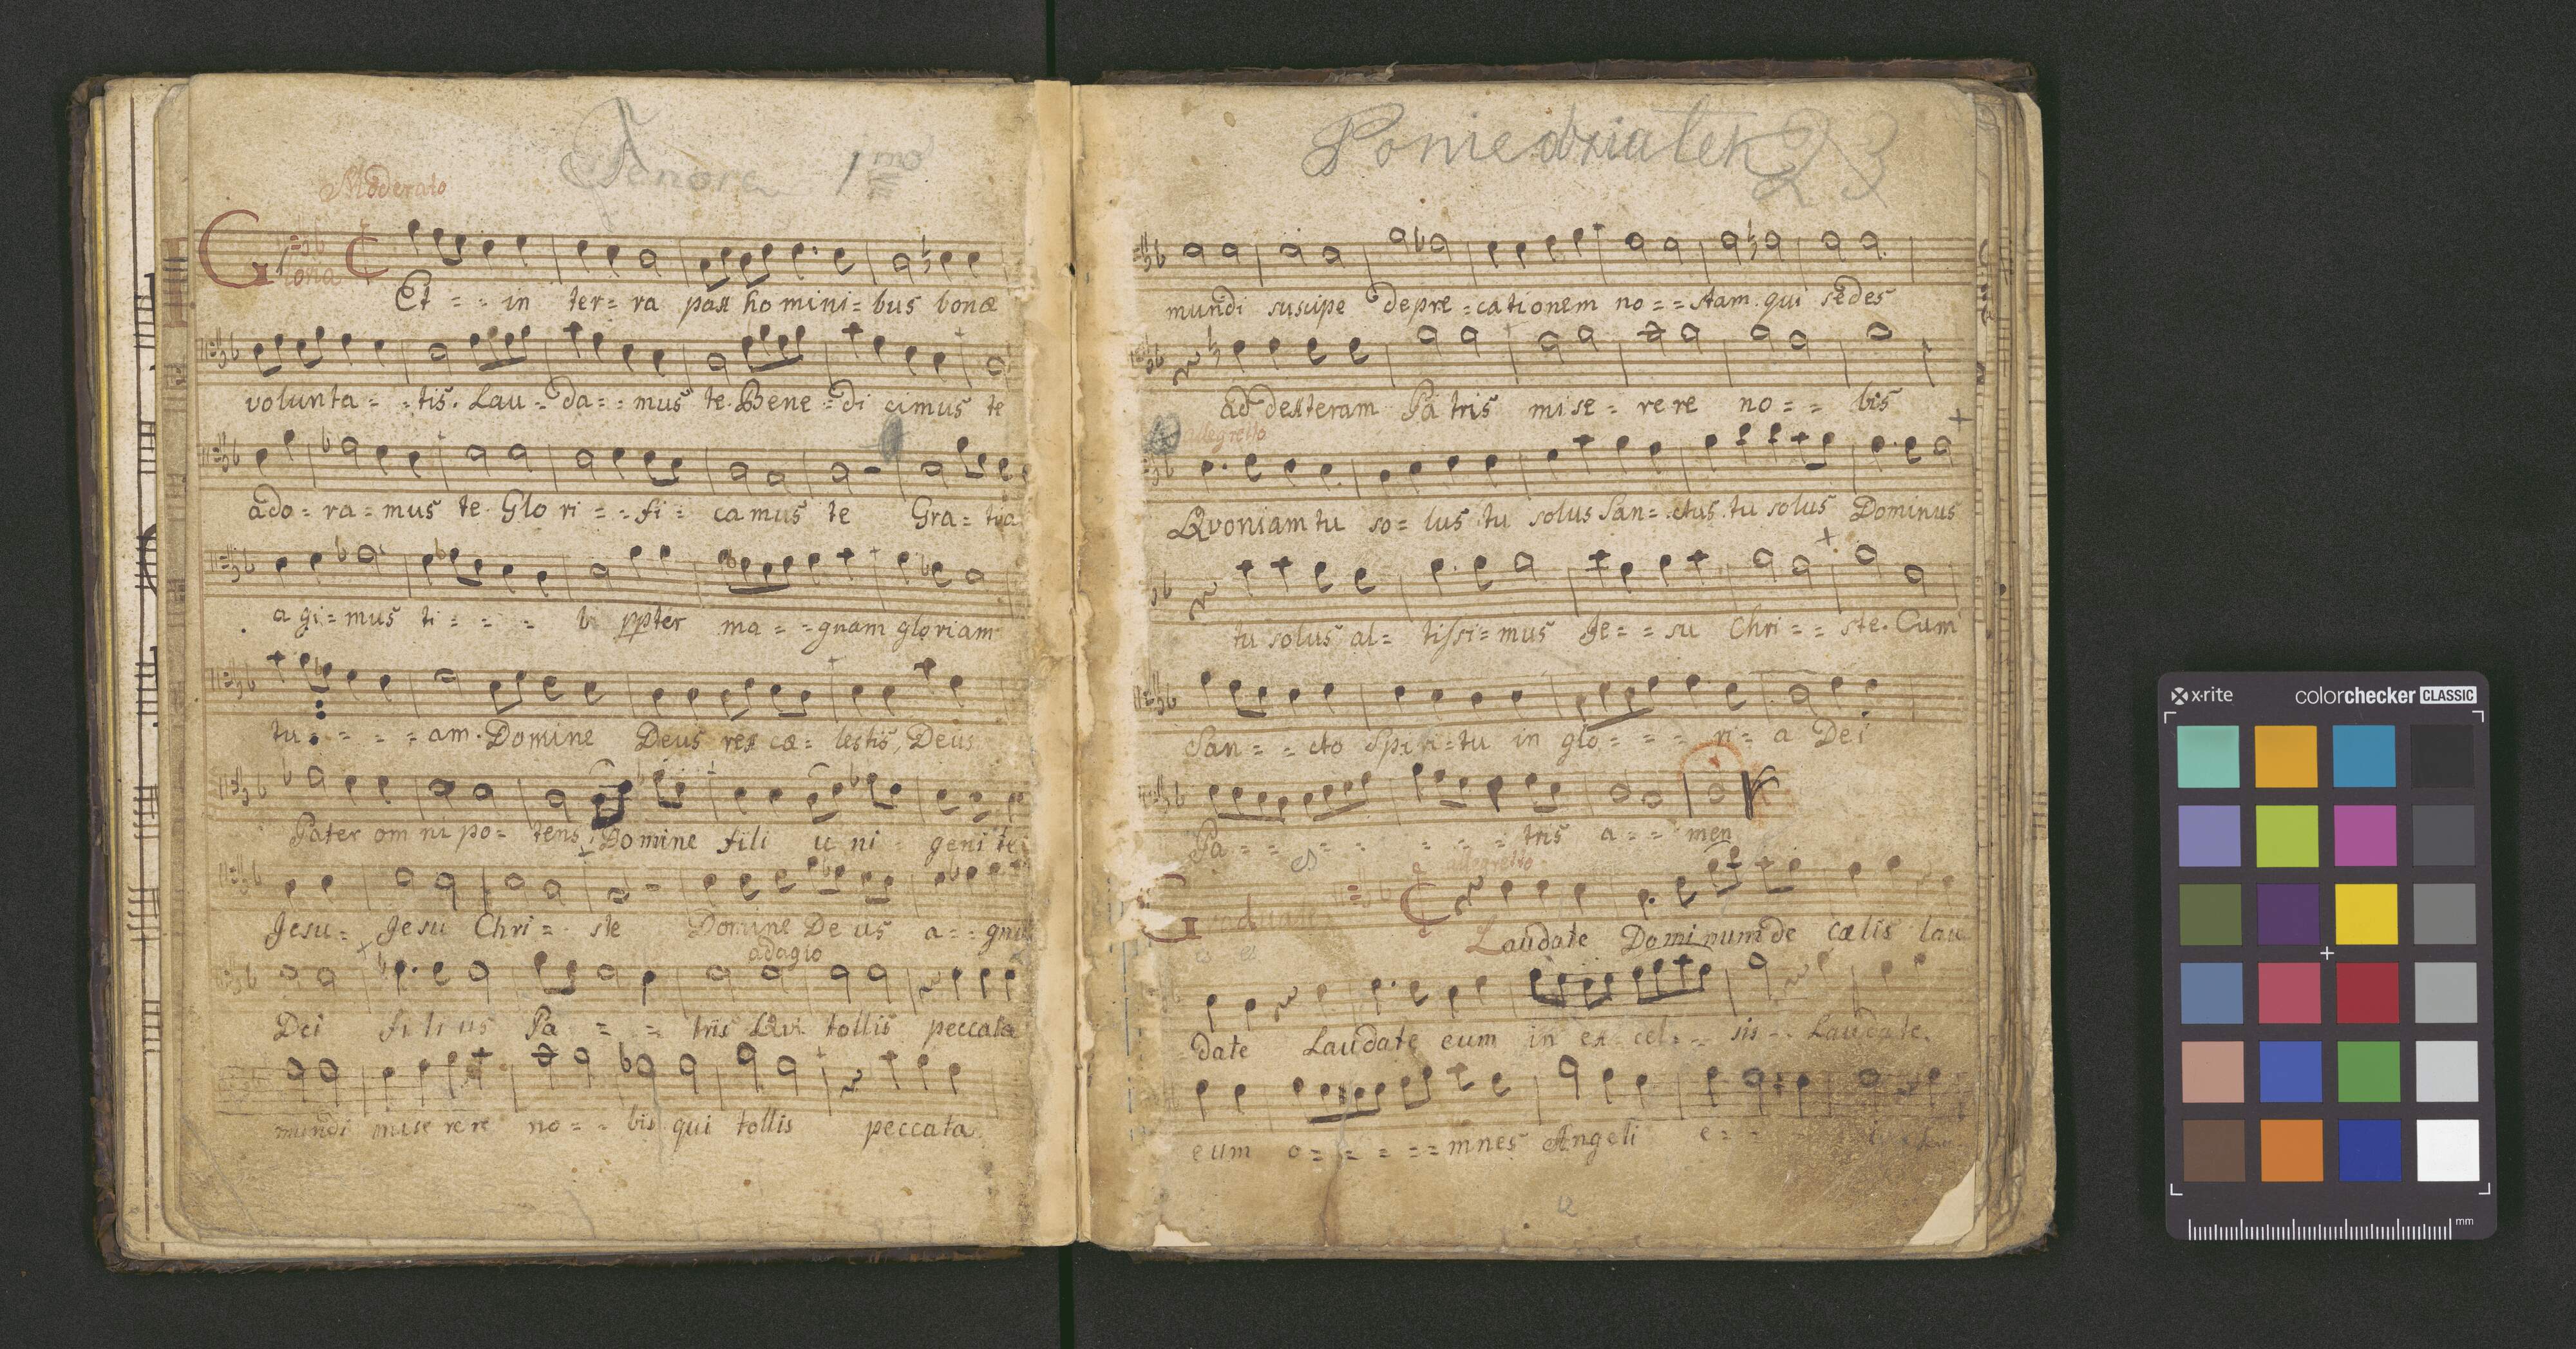 Tenore 1mo
Moderato
Gloria
Et = = in ter = ra pax hominibus bonæ
volunta = = tis. Lau = da = = mus te. Bene = di cimus te
ado = ra = mus te. Glo ri = = fi = camus te Gra = tia
a gi = mus ti = = = bi ppter ma = = gnam gloriam
tu = = = = am. Domine Deus rex cæ = lestis, Deus
Pater om ni po = tens, Domine fili u ni = geni te
Jesu = Jesu Chri = ste Domine De us a = = gnus
adagio
Dei fi li us Pa = = tris Qui tollis peccata
mundi mise re re no = = bis qui tollis peccata
Poniedziałek 23
mundi suscipe depre = cationem no = = stam. qui sedes
ad dexteram Pa tris mise = re re no = = bis
allegretto
Qvoniam tu so = lus tu solus San = ctus. tu solus Dominus
tu solus al = tissi = mus Je = = su Chri = = ste. Cum
San = = cto Spiri = tu in glo = = = ri = a Dei
Pa = = = = = = tris a = = men
allegretto
Laudate Dominum de cælis lau
date Laudate eum in ex cel = = sis = = Laudate.
eum o = = = = = mnes Angeli e =
x-rite colorchecker CLASSIC
mm